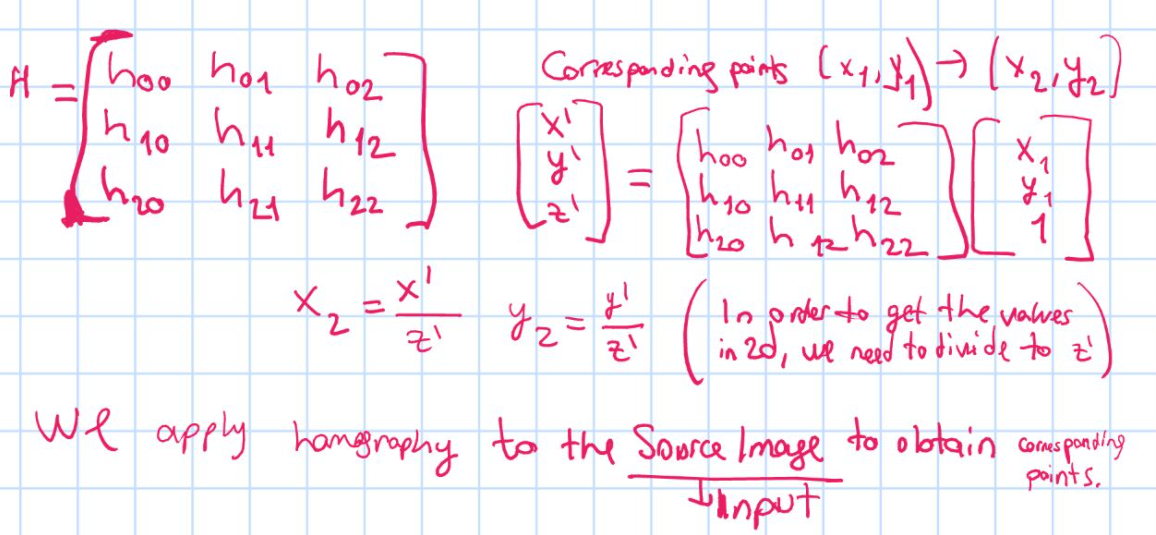 H = [h00 h01 h02
h10 h11 h12
h20 h21 h22]
Corresponding points (x1, y1) → (x2, y2)
[x' y' z'] = [h00 h01 h02
h10 h11 h12
h20 h12 h22] [x1 y1 1]
x2 = x'/z' y2 = y'/z' (In order to get the values
in 2d, we need to divide to z')
We apply homography to the Source Image to obtain corresponding
points.
↓ Input